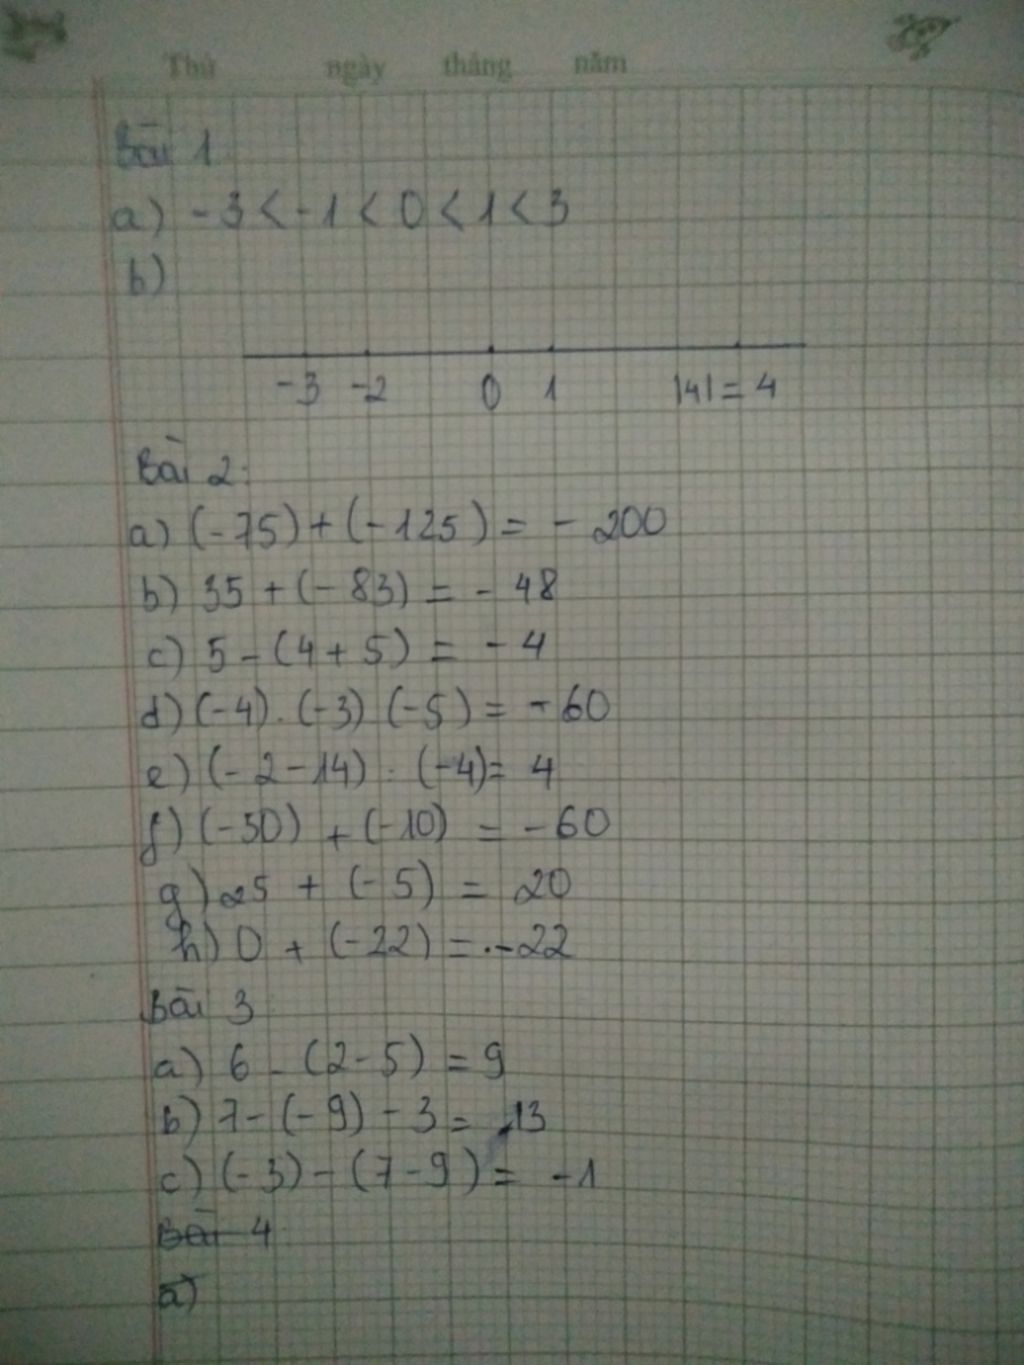 Thứ ngày tháng năm
Bài 1
a) -3 < -1 < 0 < 1 < 3
b)
-3 -2 0 1 |4| = 4
Bài 2:
a) (-75) + (-125) = - 200
b) 35 + (- 83) = - 48
c) 5 - (4 + 5) = - 4
d) (-4) . (-3) (-5) = - 60
e) (- 2 - 14) : (-4) = 4
f) (-50) + (-10) = - 60
g) 25 + (-5) = 20
h) 0 + (-22) = -22
Bài 3
a) 6 - (2 - 5) = 9
b) 7 - (- 9) - 3 = 13
c) (-3) - (7 - 9) = -1
Bài 4
a)